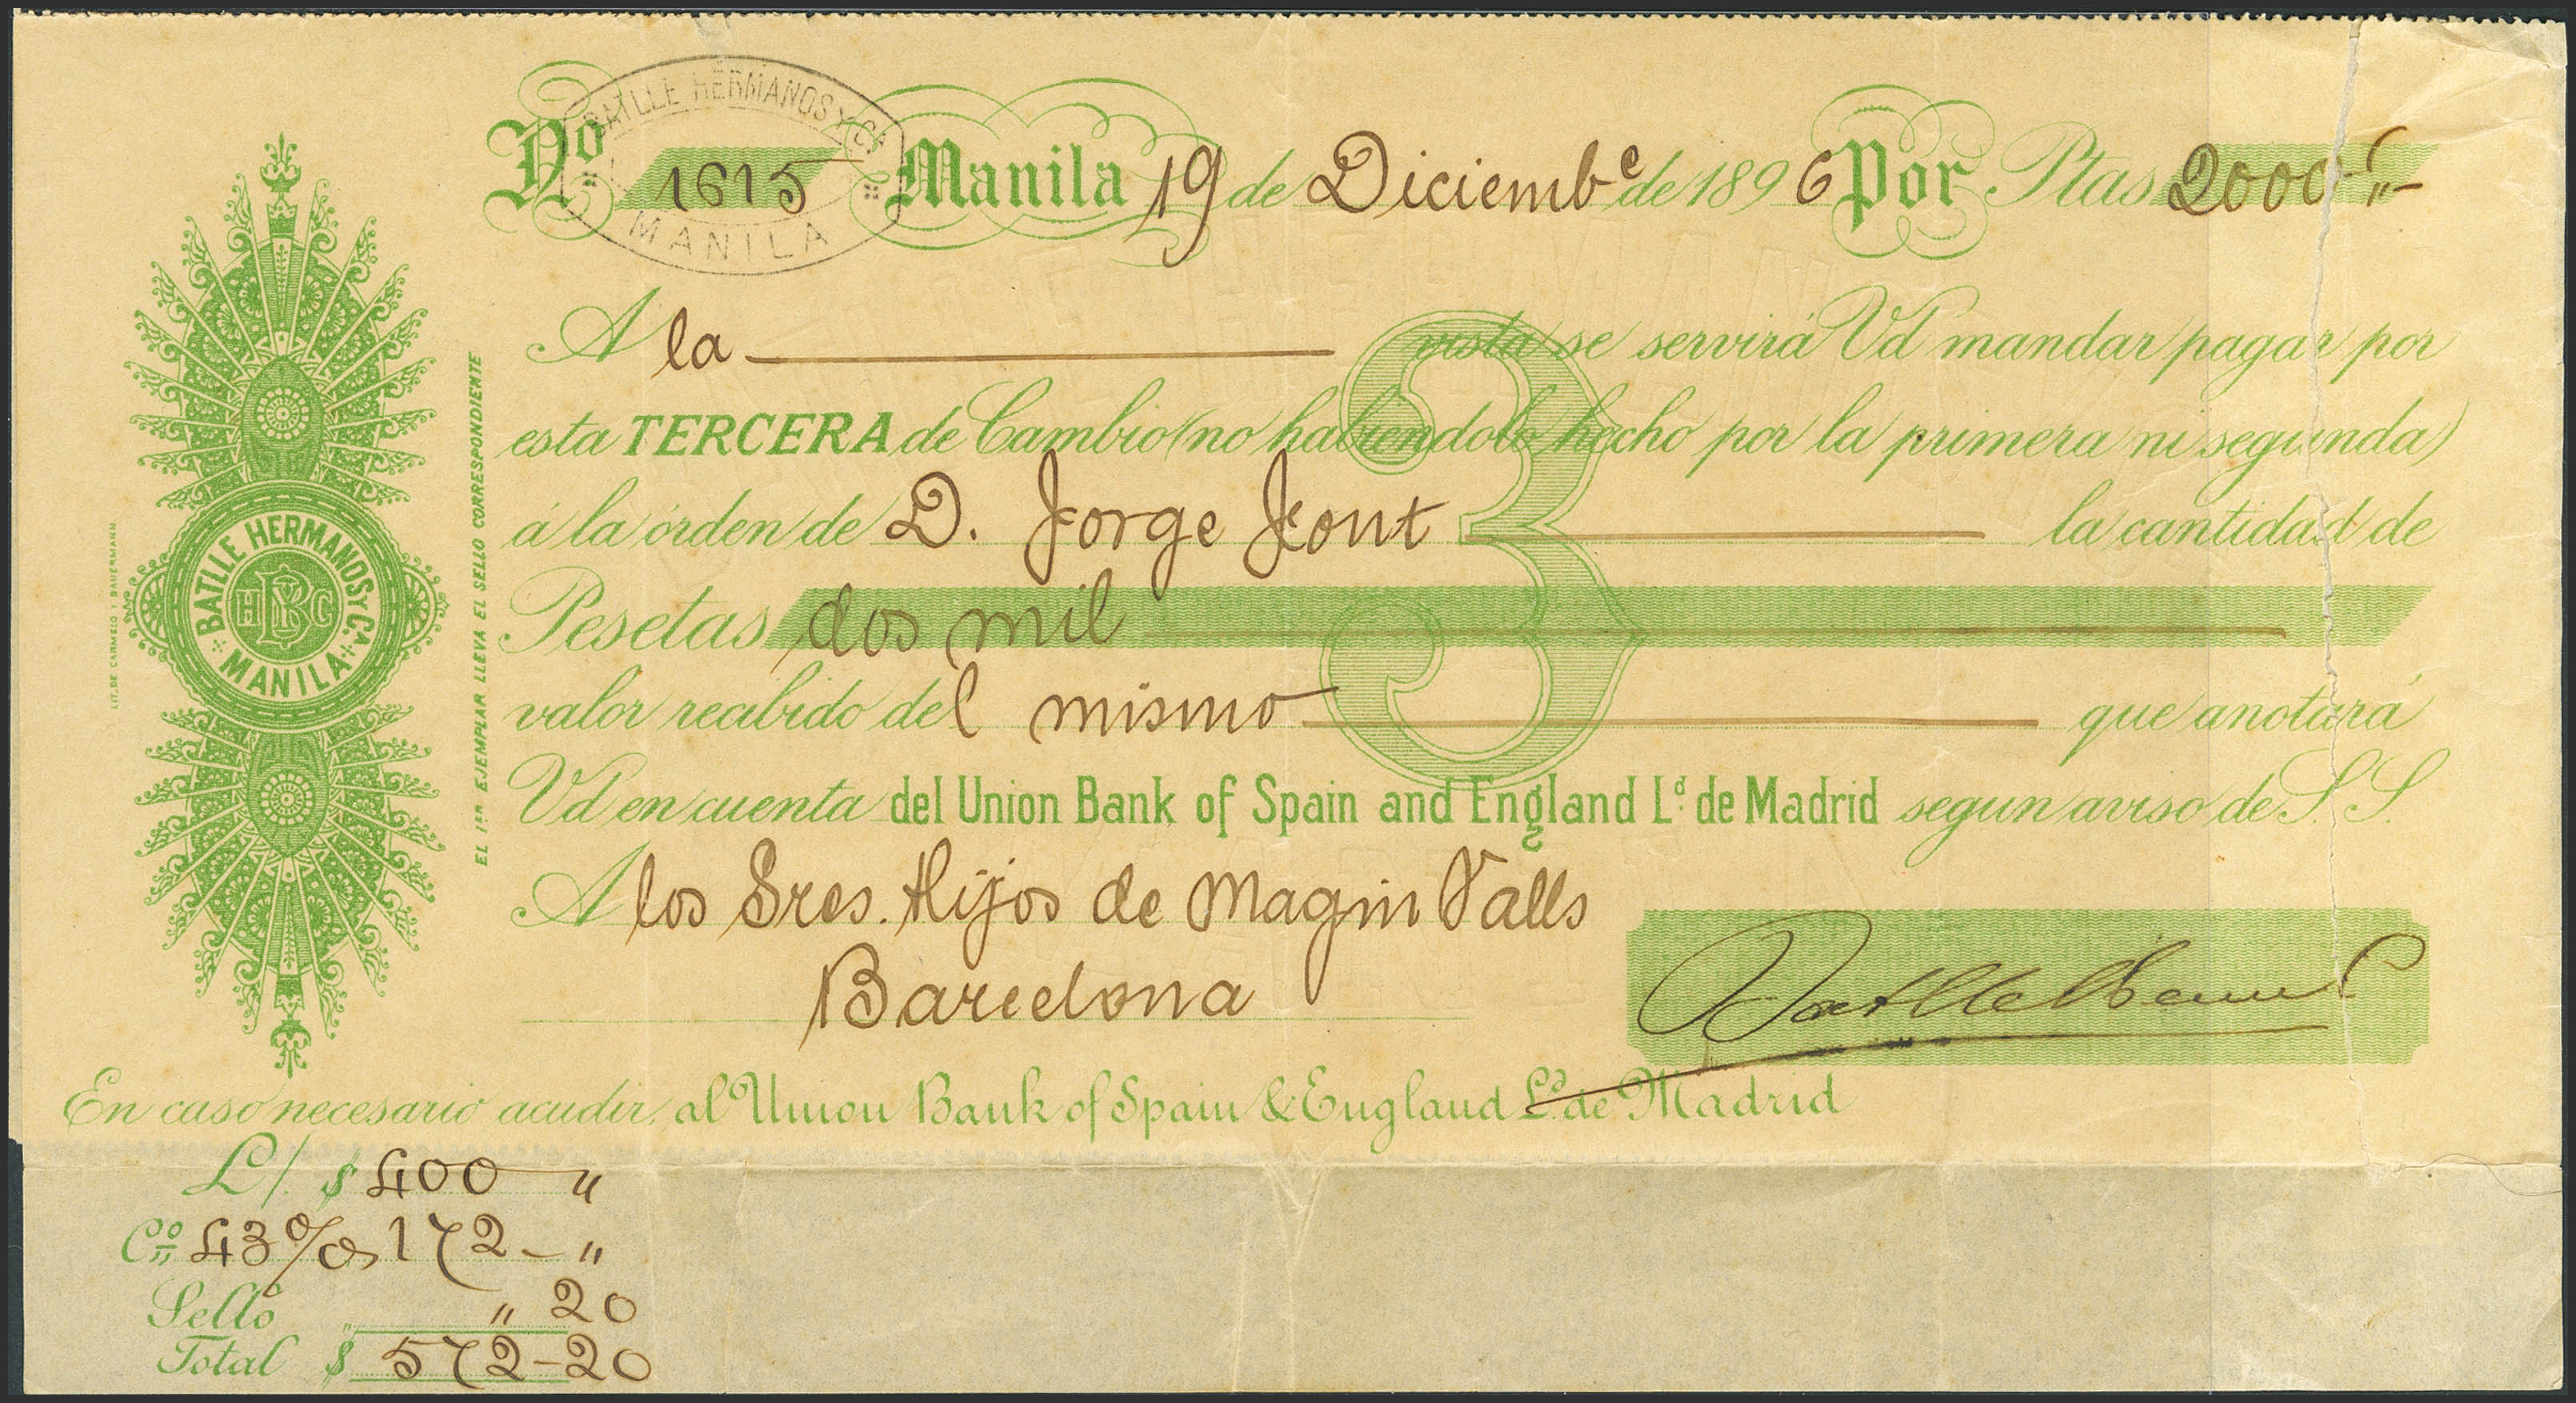 BATLLE HERMANOS Y Cª
MANILA
Nº 1615 Manila 19 de Diciembe de 1896 Por Ptas 2000"-
A la vista se servirá Vd mandar pagar por
esta TERCERA de Cambio (no habiendolo hecho por la primera ni segunda)
á la órden de D. Jorge Font la cantidad de
Pesetas dos mil
valor recibido del mismo que anotará
Vd en cuenta del Union Bank of Spain and England Ld. de Madrid segun aviso de S. S.
A los Sres. Hijos de Magin Valls
Barcelona
En caso necesario acudir, al Union Bank of Spain & England Ld. de Madrid
L/. $ 400 "
Co. 43%os 172 - "
Sello " " 20
Total $ 572-20
BATLLE HERMANOS Y Cª.
MANILA
HBC
EL 1ER EJEMPLAR LLEVA EL SELLO CORRESPONDIENTE
LIT. DE CARMELO Y BAUERMANN
3